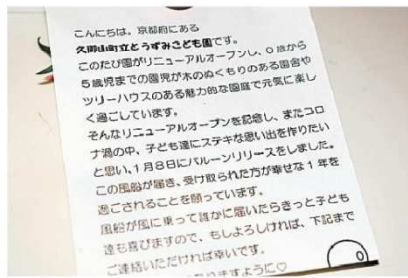 こんにちは。京都府にある
久御山町立とうずみこども園です。
このたび園がリニューアルオープンし、0歳から
5歳児までの園児が木のぬくもりのある園舎や
ツリーハウスのある魅力的な園庭で元気に楽し
く過ごしています。
そんなリニューアルオープンを記念し、またコロ
ナ渦の中、子ども達にステキな思い出を作りたい
と思い、1月8日にバルーンリリースをしました。
この風船が届き、受け取られた方が幸せな1年を
過ごされることを願っています。
風船が風に乗って誰かに届いたらきっと子ども
達も喜びますので、もしよろしければ、下記まで
ご連絡いただければ幸いです。
りますように♡